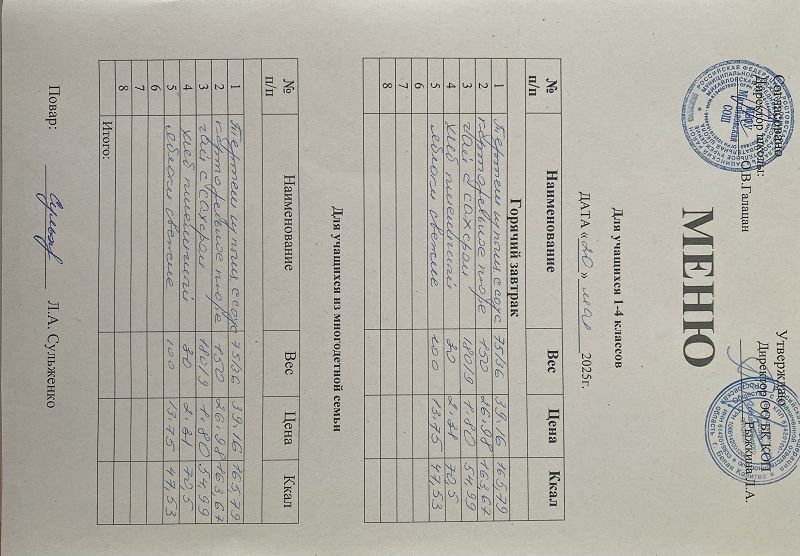 Согласовано
Директор школы:
О.В.Галацан
Утверждаю
Директор ОО ВК КОП
Рыжкина Л.А.
МЕНЮ
Для учащихся 1-4 классов
ДАТА «20» мая 2025г.
№ п/п Наименование Вес Цена Ккал
Горячий завтрак
1 Тефтели куриц с соус 75/36 39.16 165,79
2 картофельное пюре 150 26.98 163,67
3 чай с сахаром 180/9 1.80 54.99
4 хлеб пшеничный 30 2.31 70,5
5 яблоки свежие 100 13.75 47,53
6
7
8
Для учащихся из многодетной семьи
№ п/п Наименование Вес Цена Ккал
1 Тефтели куриц с соус 75/36 39.16 165,79
2 картофельное пюре 150 26.98 163,67
3 чай с сахаром 180/9 1.80 54.99
4 хлеб пшеничный 30 2.31 70,5
5 яблоки свежие 100 13.75 47,53
6
7
8
Итого:
Повар: Л.А. Сульженко